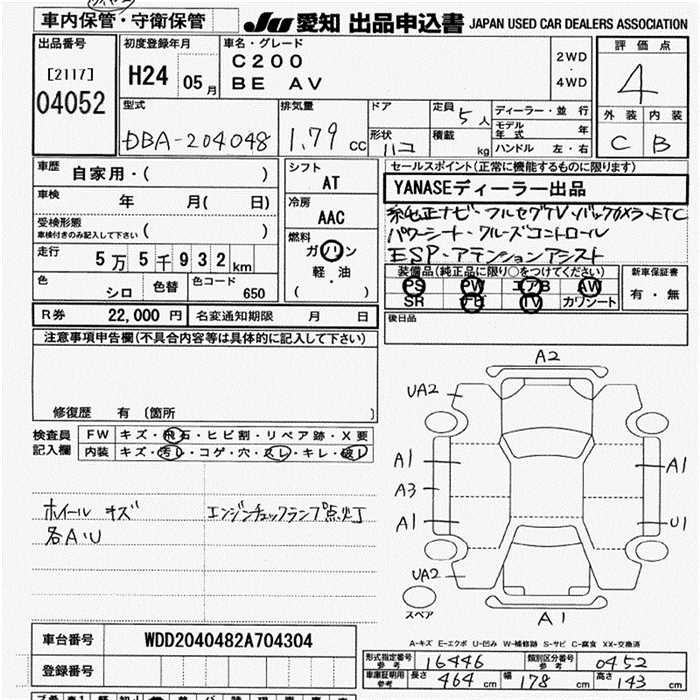 車内保管・守衛保管
JU 愛知 出品申込書 JAPAN USED CAR DEALERS ASSOCIATION
出品番号
[2117]
04052
初度登録年月
H24 05月
車名・グレード
C200
BE AV
2WD
・
4WD
評価点
4
外装 内装
C B
型式
DBA-204048
排気量
1.79 CC
ドア
形状
ハコ
定員 5人
積載 kg
ディーラー・並行
モデル年式 年
ハンドル 左・右
車歴 自家用・( )
車検 年 月( 日)
受検形態
車検付きのみ記入して下さい ( )
走行 5万5千932km
色 シロ 色替 色コード 650
シフト AT
冷房 AAC
燃料
ガソリン
軽・油
( )
セールスポイント(正常に機能するものに限ります)
YANASEディーラー出品
純正ナビ・フルセグTV・バックカメラ・ETC
パワーシート・クルーズコントロール
ESP・アテンションアシスト
装備品(純正品に限り○をつけてください)
PS PW エアB AW
SR ナビ TV カワシート
新車保証書
有・無
R券 22,000 円 名変通知期限 月 日
後日品
注意事項申告欄(不具合内容等は具体的に記入して下さい)
修復歴 有 〔箇所 〕
検査員記入欄
FW キズ・飛石・ヒビ割・リペア跡・X要
内装 キズ・汚レ・コゲ・穴・スレ・キレ・破レ
ホイール キズ
各A・U
エンジンチェックランプ点灯
A2
UA2
A1 A1
A3
A1 U1
UA2
スペア
A1
A-キズ E-エクボ U-凹み W-補修跡 S-サビ C-腐食 XX-交換済
車台番号 WDD2040482A704304
登録番号
形式指定番号 参考 16446 類別区分番号 参考 0452
車庫証明用 参考 長さ 464 cm 幅 178 cm 高さ 143 cm